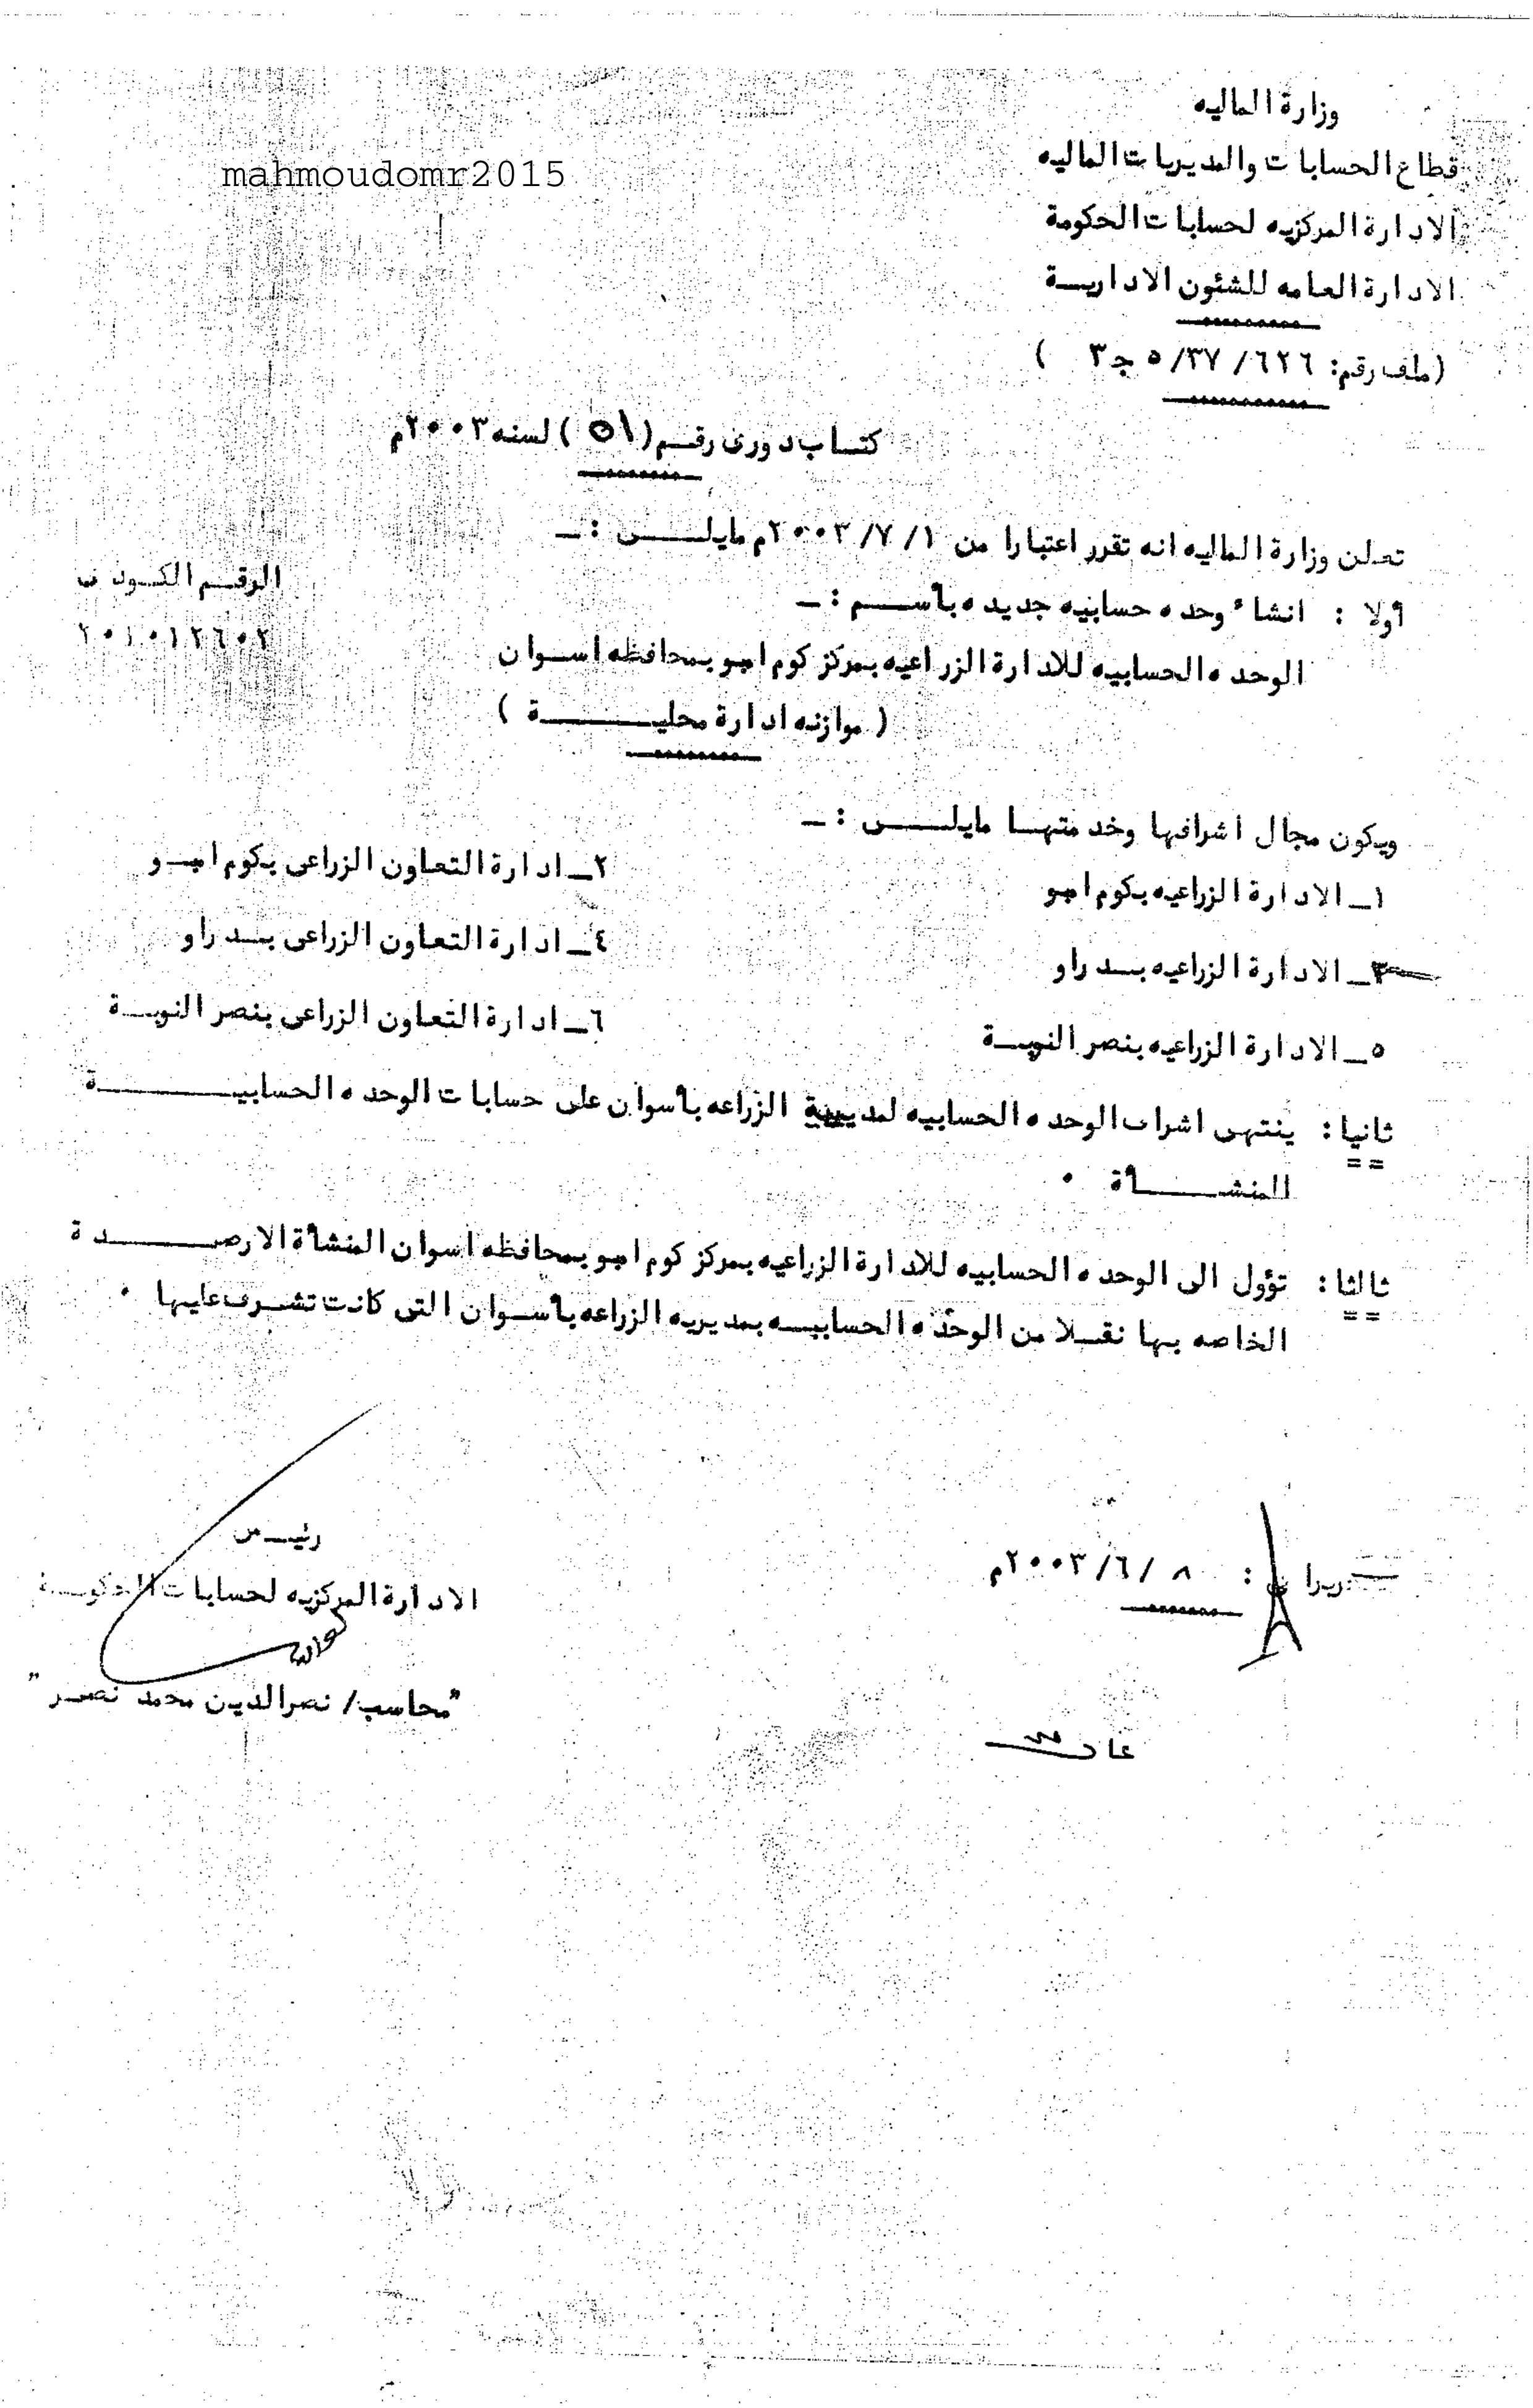 وزارة الماليه
mahmoudomr2015
قطاع الحسابات والمديريات الماليه
الادارة المركزيه لحسابات الحكومة
الادارة العامه للشئون الاداريــة
(ملف رقم: ٦٢٦/ ٥/٣٧ جـ٣ )
كتـاب دورى رقـم(٥١) لسنه ٢٠٠٣م
تعلن وزارة الماليه انه تقرر اعتبارا من ١/ ٧/ ٢٠٠٣م مايلـــى : ــ
الرقـم الكـودى
أولا : انشاء وحده حسابيه جديده بأســم : ــ
٢٠١٠١٢٦٠٢
الوحده الحسابيه للادارة الزراعيه بمركز كوم امبو بمحافظه اسـوان
( موازنه ادارة محليــــــة )
ويكون مجال اشرافها وخدمتهـا مايلـــى : ــ
١ــ الادارة الزراعيه بكوم امبو
٢ــ ادارة التعاون الزراعى بكوم امبـو
٣ــ الادارة الزراعيه بــدراو
٤ــ ادارة التعاون الزراعى بــدراو
٥ــ الادارة الزراعيه بنصر النوبــة
٦ــ ادارة التعاون الزراعى بنصر النوبــة
ثانيا : ينتهى اشراف الوحده الحسابيه لمديرية الزراعه بأسوان على حسابات الوحده الحسابيـــــــة
== المنشــــأة ٠
ثالثا : تؤول الى الوحده الحسابيه للادارة الزراعيه بمركز كوم امبو بمحافظه اسوان المنشأة الارصــــدة
== الخاصه بها نقـلا من الوحده الحسابيـه بمديريه الزراعه بأسـوان التى كانت تشـرف عليها ٠
رئيـس
: ٨ /٦/ ٢٠٠٣م
الادارة المركزيه لحسابات الحكومــة
"محاسب/ نصرالدين محمد نصـر"